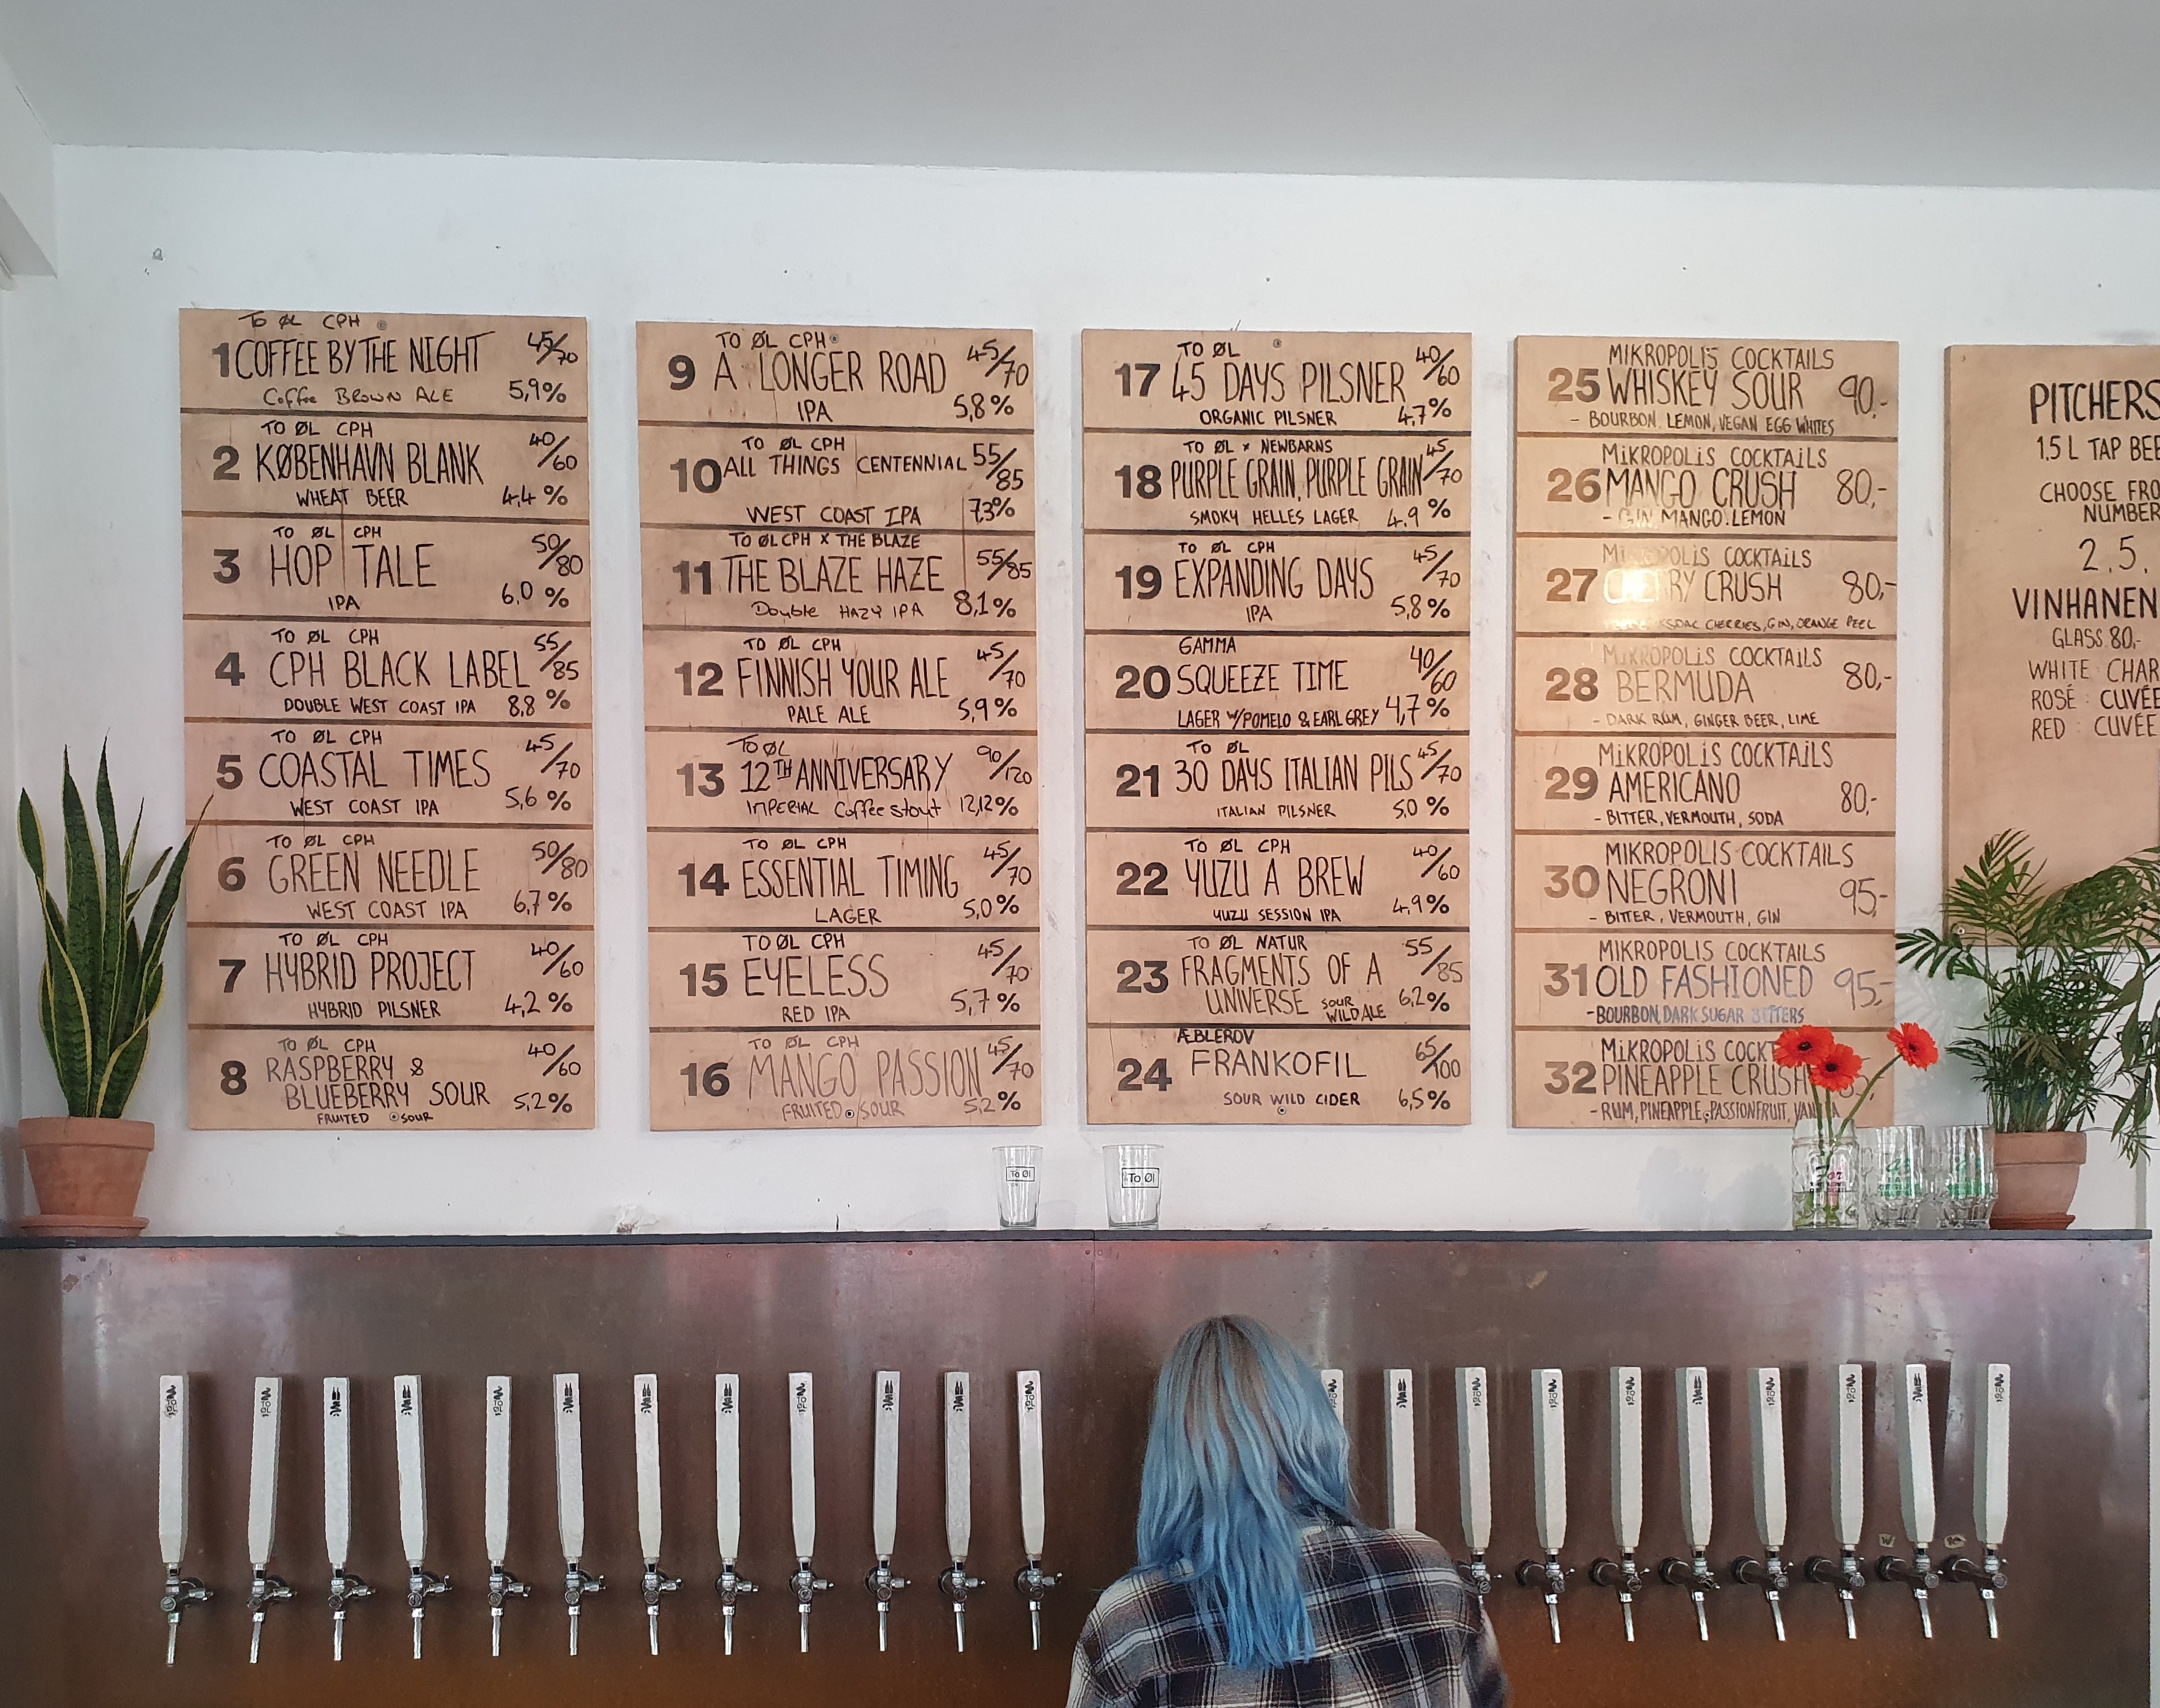 TO ØL CPH
1 COFFEE BY THE NIGHT 45/70
Coffee BROWN ALE 5,9%
TO ØL CPH
2 KØBENHAVN BLANK 40/60
WHEAT BEER 4,4%
TO ØL CPH
3 HOP TALE 50/80
IPA 6,0 %
TO ØL CPH
4 CPH BLACK LABEL 55/85
DOUBLE WEST COAST IPA 8,8 %
TO ØL CPH
5 COASTAL TIMES 45/70
WEST COAST IPA 5,6 %
TO ØL CPH
6 GREEN NEEDLE 50/80
WEST COAST IPA 6,7%
TO ØL CPH
7 HYBRID PROJECT 40/60
HYBRID PILSNER 4,2 %
TO ØL CPH
8 RASPBERRY & 40/60
BLUEBERRY SOUR 5,2%
FRUITED SOUR
TO ØL CPH
9 A LONGER ROAD 45/70
IPA 5,8%
TO ØL CPH
10 ALL THINGS CENTENNIAL 55/85
WEST COAST IPA 7,3%
TO ØL CPH X THE BLAZE
11 THE BLAZE HAZE 55/85
Double HAZY IPA 8,1%
TO ØL CPH
12 FINNISH YOUR ALE 45/70
PALE ALE 5,9%
TO ØL
13 12TH ANNIVERSARY 90/120
IMPERIAL Coffee stout 12,12%
TO ØL CPH
14 ESSENTIAL TIMING 45/70
LAGER 5,0%
TO ØL CPH
15 EYELESS 45/70
RED IPA 5,7%
TO ØL CPH
16 MANGO PASSION 45/70
FRUITED SOUR 5,2%
TO ØL
17 45 DAYS PILSNER 40/60
ORGANIC PILSNER 4,7%
TO ØL x NEWBARNS
18 PURPLE GRAIN, PURPLE GRAIN 45/70
SMOKY HELLES LAGER 4.9 %
TO ØL CPH
19 EXPANDING DAYS 45/70
IPA 5,8%
GAMMA
20 SQUEEZE TIME 40/60
LAGER W/POMELO & EARL GREY 4,7%
TO ØL
21 30 DAYS ITALIAN PILS 45/70
ITALIAN PILSNER 5,0 %
TO ØL CPH
22 YUZU A BREW 40/60
YUZU SESSION IPA 4,9%
TO ØL NATUR
23 FRAGMENTS OF A 55/85
UNIVERSE SOUR WILD ALE 6,2%
ÆBLEROV
24 FRANKOFIL 65/100
SOUR WILD CIDER 6,5%
MIKROPOLIS COCKTAILS
25 WHISKEY SOUR 90,-
- BOURBON, LEMON, VEGAN EGG WHITES
MIKROPOLIS COCKTAILS
26 MANGO CRUSH 80,-
- GIN, MANGO, LEMON
MIKROPOLIS COCKTAILS
27 CHERRY CRUSH 80,-
CHERRIES, GIN, ORANGE PEEL
MIKROPOLIS COCKTAILS
28 BERMUDA 80,-
- DARK RUM, GINGER BEER, LIME
MIKROPOLIS COCKTAILS
29 AMERICANO 80,-
- BITTER, VERMOUTH, SODA
MIKROPOLIS COCKTAILS
30 NEGRONI 95,-
- BITTER, VERMOUTH, GIN
MIKROPOLIS COCKTAILS
31 OLD FASHIONED 95,-
- BOURBON, DARK SUGAR BITTERS
MIKROPOLIS COCKT
32 PINEAPPLE CRUSH
- RUM, PINEAPPLE, PASSIONFRUIT, VANILLA
PITCHERS
1,5 L TAP BEE
CHOOSE FRO
NUMBER
2, 5,
VINHANEN
GLASS 80,-
WHITE : CHAR
ROSÉ : CUVÉE
RED : CUVÉE
To Øl
To Øl